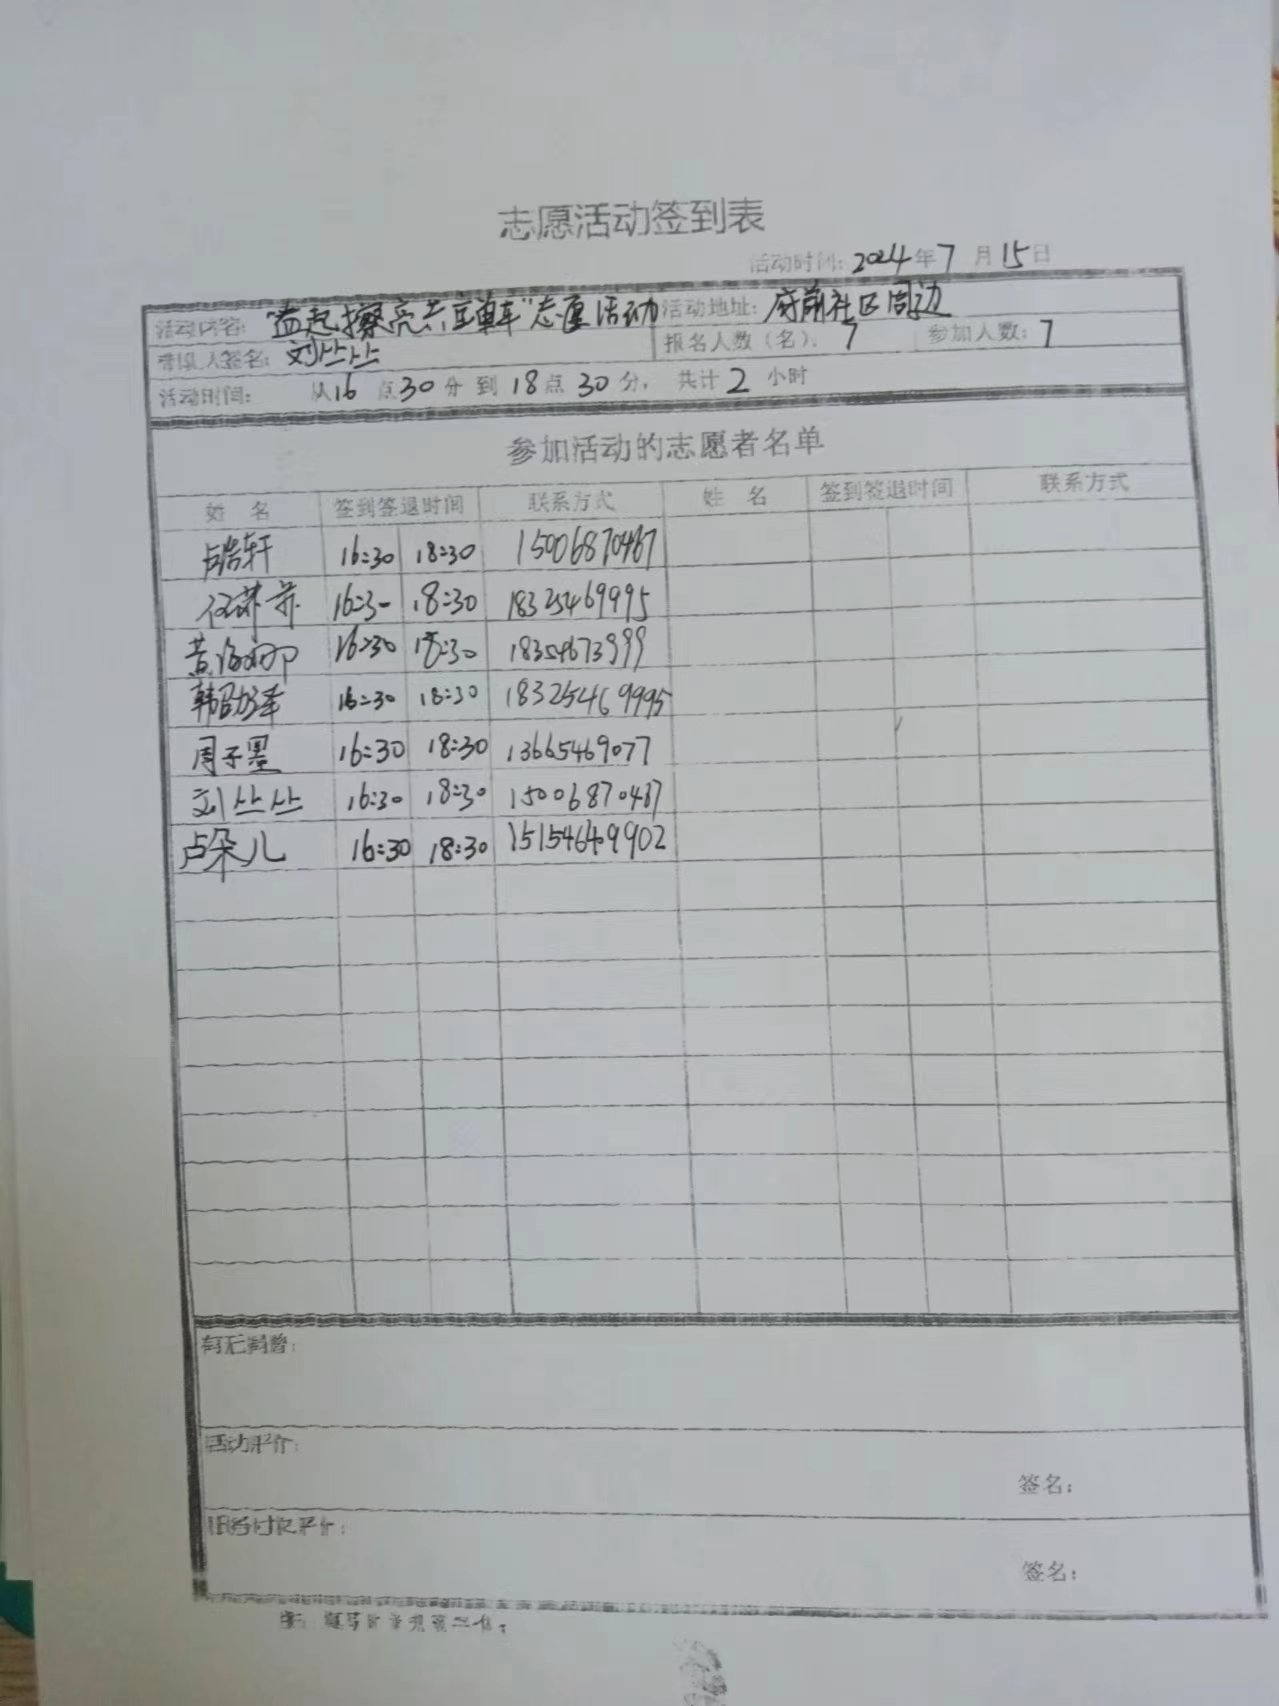 志愿活动签到表
活动时间：2024年7月15日
活动内容："益起擦亮共享单车"志愿活动 活动地址：府前社区周边
带队人签名：刘丛丛 报名人数（名）：7 参加人数：7
活动时间： 从16点30分到18点30分，共计2小时
参加活动的志愿者名单
姓 名 签到签退时间 联系方式 姓 名 签到签退时间 联系方式
卢浩轩 16:30 18:30 15006870487
16:3- 18:30 18325469995
16:30 18:30 18354673999
16:30 18:30 18325469995
周子墨 16:30 18:30 13665469077
刘丛丛 16:30 18:30 15006870487
卢朵儿 16:30 18:30 15154649902
活动评价：
签名：
服务对象评价：
签名：